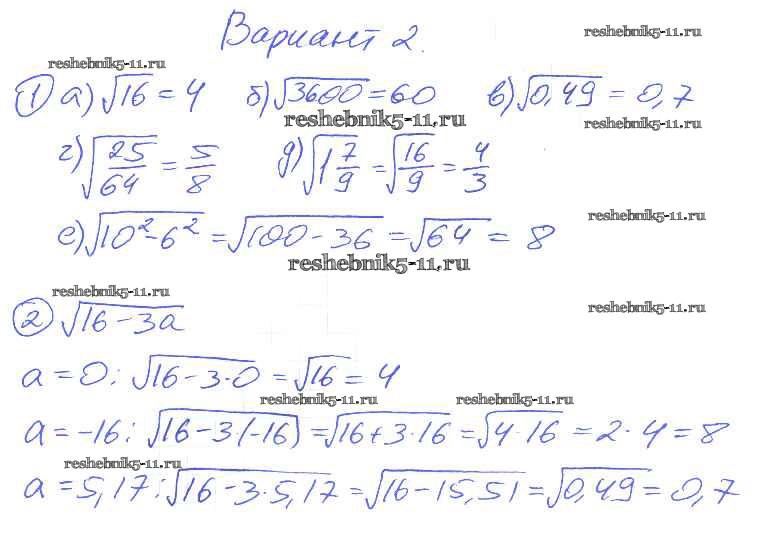 Вариант 2.
reshebnik5-11.ru
reshebnik5-11.ru
① а) √16 = 4 б) √3600 = 60 в) √0,49 = 0,7
reshebnik5-11.ru
reshebnik5-11.ru
г) √25/64 = 5/8 д) √1 7/9 = √16/9 = 4/3
reshebnik5-11.ru
е) √10²-6² = √100-36 = √64 = 8
reshebnik5-11.ru
reshebnik5-11.ru
② √16-3a
reshebnik5-11.ru
a = 0: √16-3·0 = √16 = 4
reshebnik5-11.ru reshebnik5-11.ru
a = -16: √16-3(-16) = √16+3·16 = √4·16 = 2·4 = 8
reshebnik5-11.ru
a = 5,17: √16-3·5,17 = √16-15,51 = √0,49 = 0,7